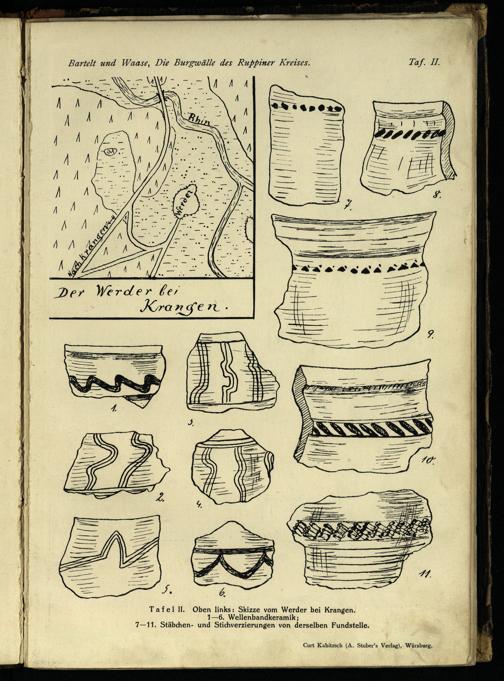 Bartelt und Waase, Die Burgwälle des Ruppiner Kreises. Taf. II.
Rhin
Werder
Nach Krangen
Der Werder bei
Krangen.
7.
8.
9.
1.
3.
10.
2.
4.
5.
6.
11.
Tafel II. Oben links: Skizze vom Werder bei Krangen.
1—6. Wellenbandkeramik;
7—11. Stäbchen- und Stichverzierungen von derselben Fundstelle.
Curt Kabitzsch (A. Stuber's Verlag), Würzburg.